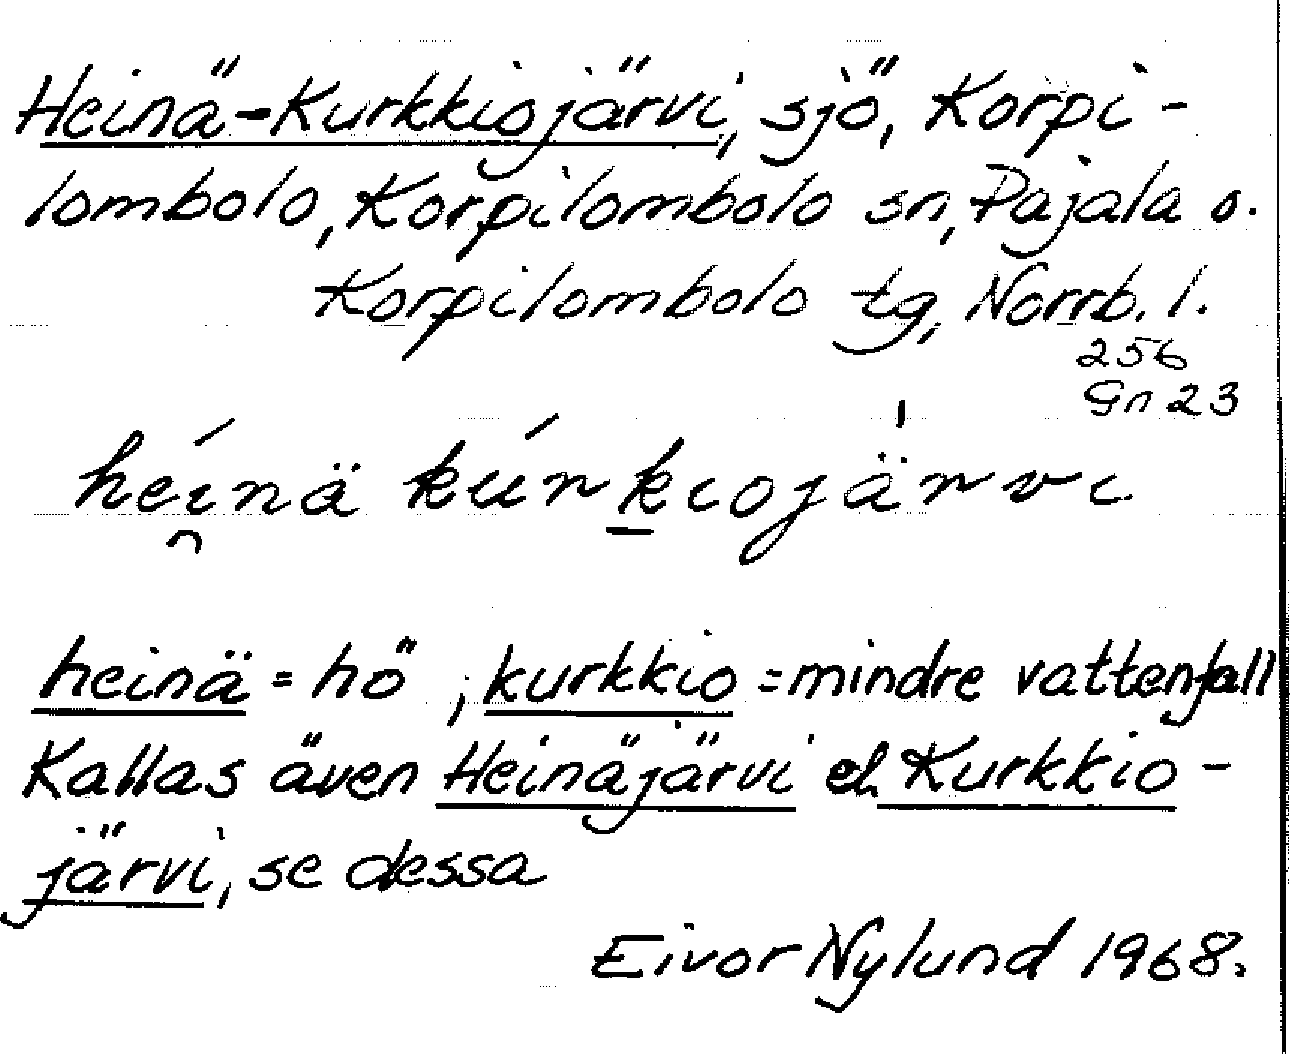 Heinä-Kurkkiojärvi, sjö, Korpi-
lombolo, Korpilombolo sn, Pajala s.
Korpilombolo tg, Norrb. l.
256
Gn 23
heí̯nä kúrk̠iojärvi
heinä = hö, kurkkio = mindre vattenfall
Kallas även Heinäjärvi el. Kurkkio-
järvi, se dessa
Eivor Nylund 1968.